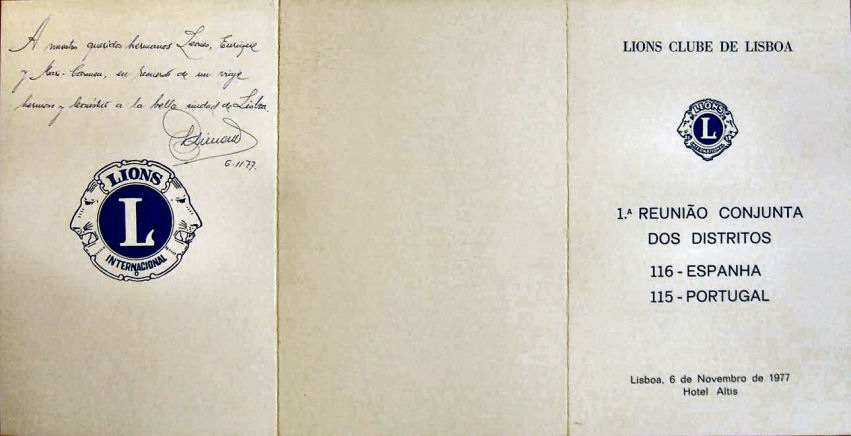 A nuestros queridos hermanos Leones, Enrique
y Mari-Carmen, en recuerdo de un viaje
hermoso y leonístico a la bella ciudad de Lisboa.
6-11-77.
LIONS
L
INTERNACIONAL
LIONS CLUBE DE LISBOA
LIONS
L
INTERNATIONAL
1.ª REUNIÃO CONJUNTA
DOS DISTRITOS
116 - ESPANHA
115 - PORTUGAL
Lisboa, 6 de Novembro de 1977
Hotel Altis